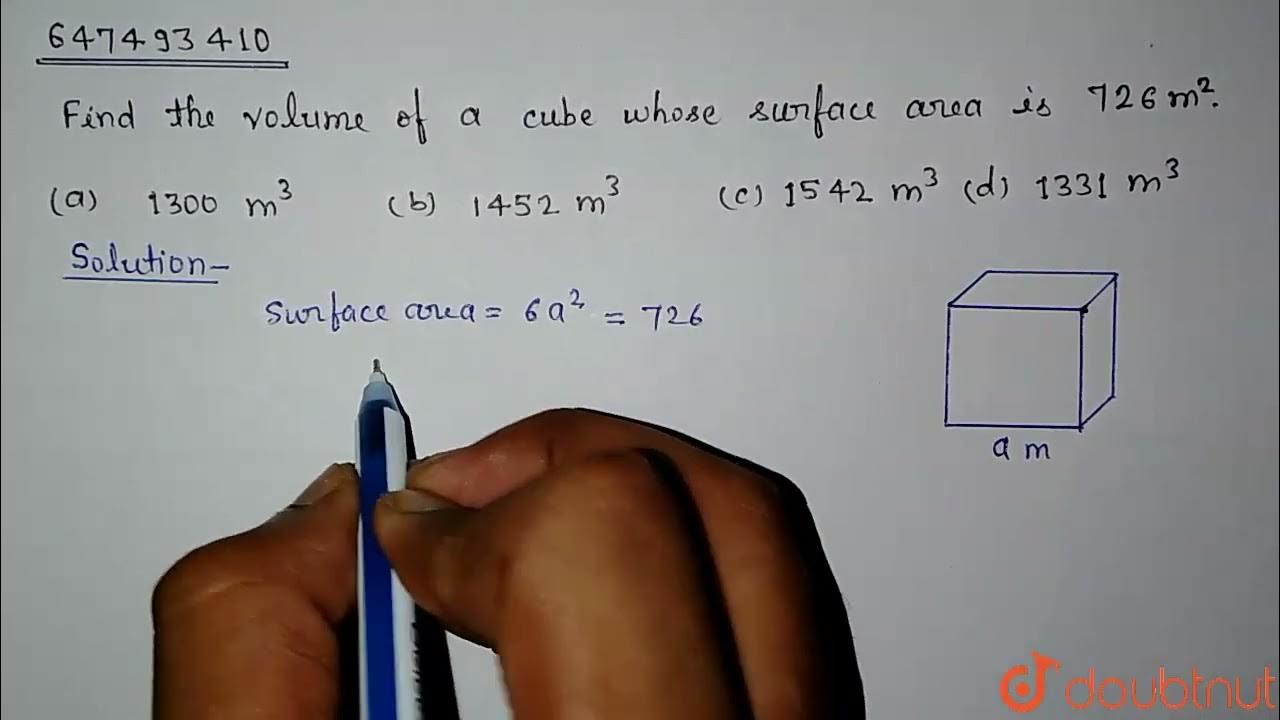 647493410
Find the volume of a cube whose surface area is 726 m².
(a) 1300 m³ (b) 1452 m³ (c) 1542 m³ (d) 1331 m³
Solution-
Surface area = 6a² = 726
a m
doubtnut